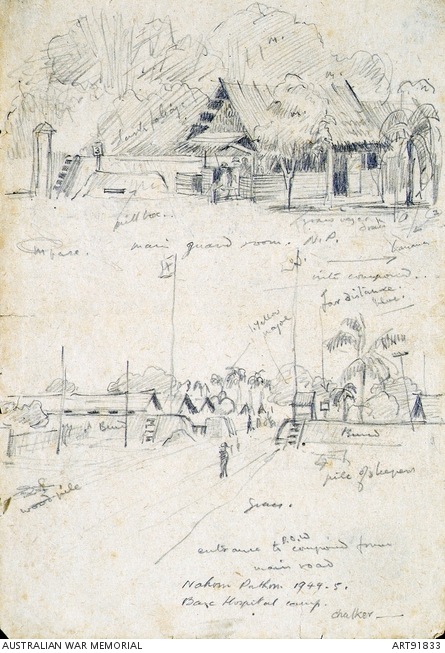 dark foliage
pill box..
main guard room. N.P.
banana
into compound...
far distance.
yellow
Bund
Bund
pile of sleepers
wood-pile
Grass.
entrance to P.O.W compound from
main road
Nakom Pathom 1944-5.
Base Hospital camp.
Chalker
AUSTRALIAN WAR MEMORIAL
ART91833